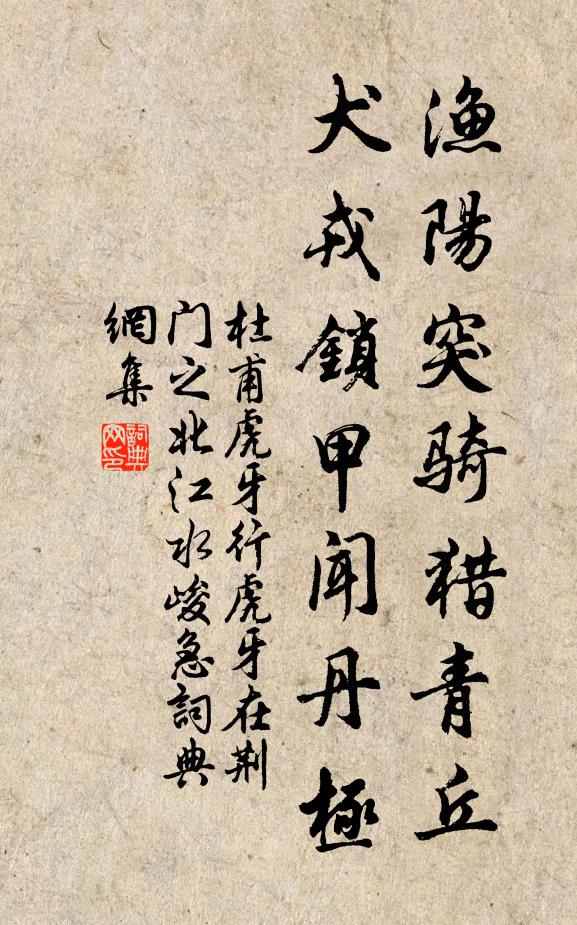 渔陽突骑猎青丘
犬戎鎖甲闻丹極
杜甫虎牙行虎牙在荆
门之北江水峻急詞典
網集
詞典
网印